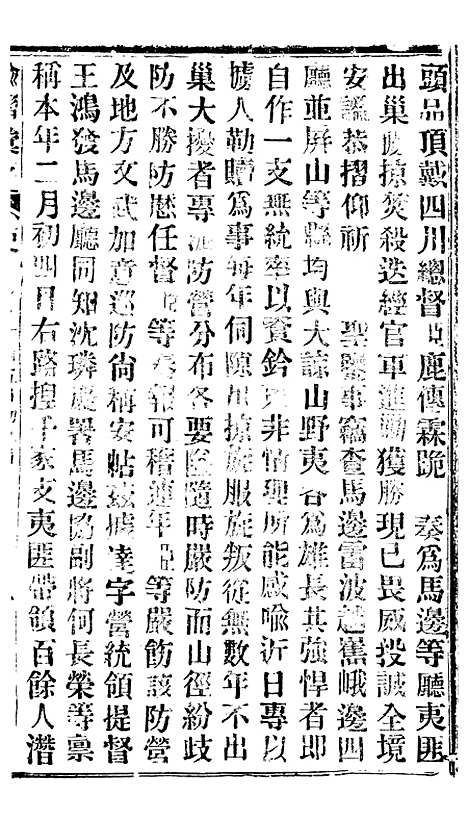 頭品頂戴四川總督臣鹿傳霖跪　奏爲馬邊等廳夷匪
出巢虜掠焚殺迭經官軍進勦獲勝現已畏威投誠全境
安謐恭摺仰祈　聖鑒事竊查馬邊雷波越嶲峨邊四
廳並屏山等縣均與大涼山野夷各爲雄長其強悍者即
自作一支無統率以資鈐束非情理所能感喻近日專以
擄人勒贖爲事每年伺隙虜掠旋服旋叛從無數年不出
巢大擾者專派防營分布各要隘隨時嚴防而山徑紛歧
防不勝防歷任督臣等奏報可稽連年臣等嚴飭該防營
及地方文武加意巡防尙稱安帖茲據達字營統領提督
王鴻發馬邊廳同知沈璘慶署馬邊協副將何長榮等禀
稱本年二月初四日右路挖千家支夷匪帶領百餘人潛